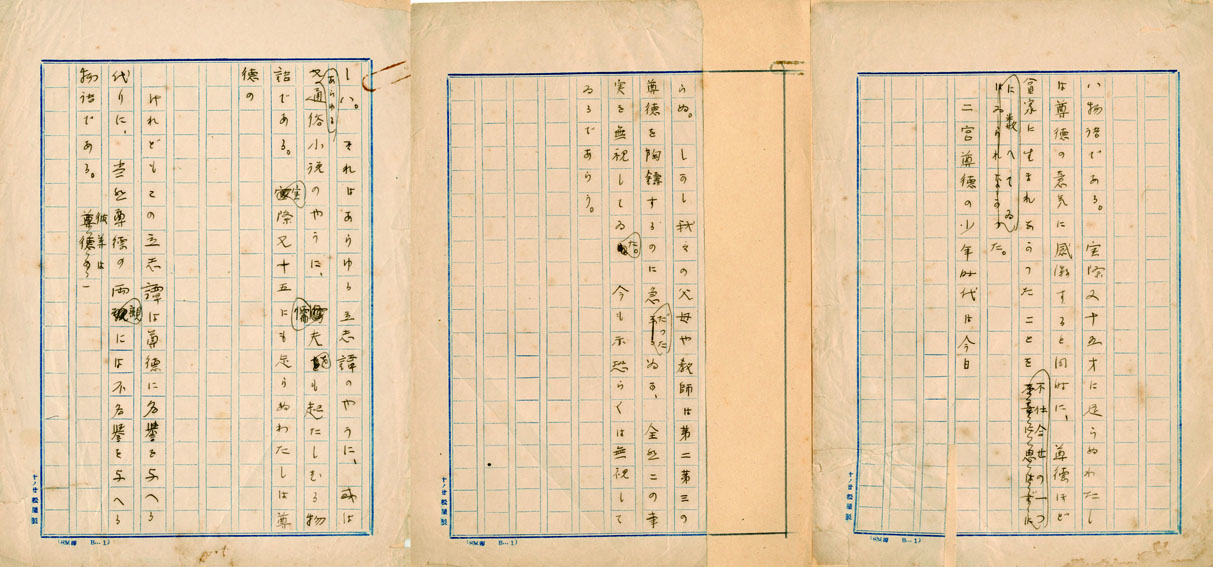 い物語である。実際又十五才に足らぬわたし
は尊徳の意気に感激すると同時に、尊徳ほど
貧家に生まれなかつたことを不仕合せの一つ
に数へてゐ
はゐられなかつた。
二宮尊徳の少年時代は今日
らぬ。しかし我々の父母や教師は第二第三の
尊徳を陶鋳するのに急だつた
為か、全然この事
実を無視してゐた。今も亦恐らくは無視して
ゐるであらう。
しい。それはあらゆる立志譚のやうに、或は
あらゆる
又通俗小説のやうに、懦夫をも起たしむる物
語である。実際又十五にも足らぬわたしは尊
徳の
けれどもこの立志譚は尊徳に名誉を与へる
代りに、当然尊徳の両親には不名誉を与へる
物語である。彼等は
尊徳の
十ノ廿 松屋製
十ノ廿 松屋製
十ノ廿 松屋製